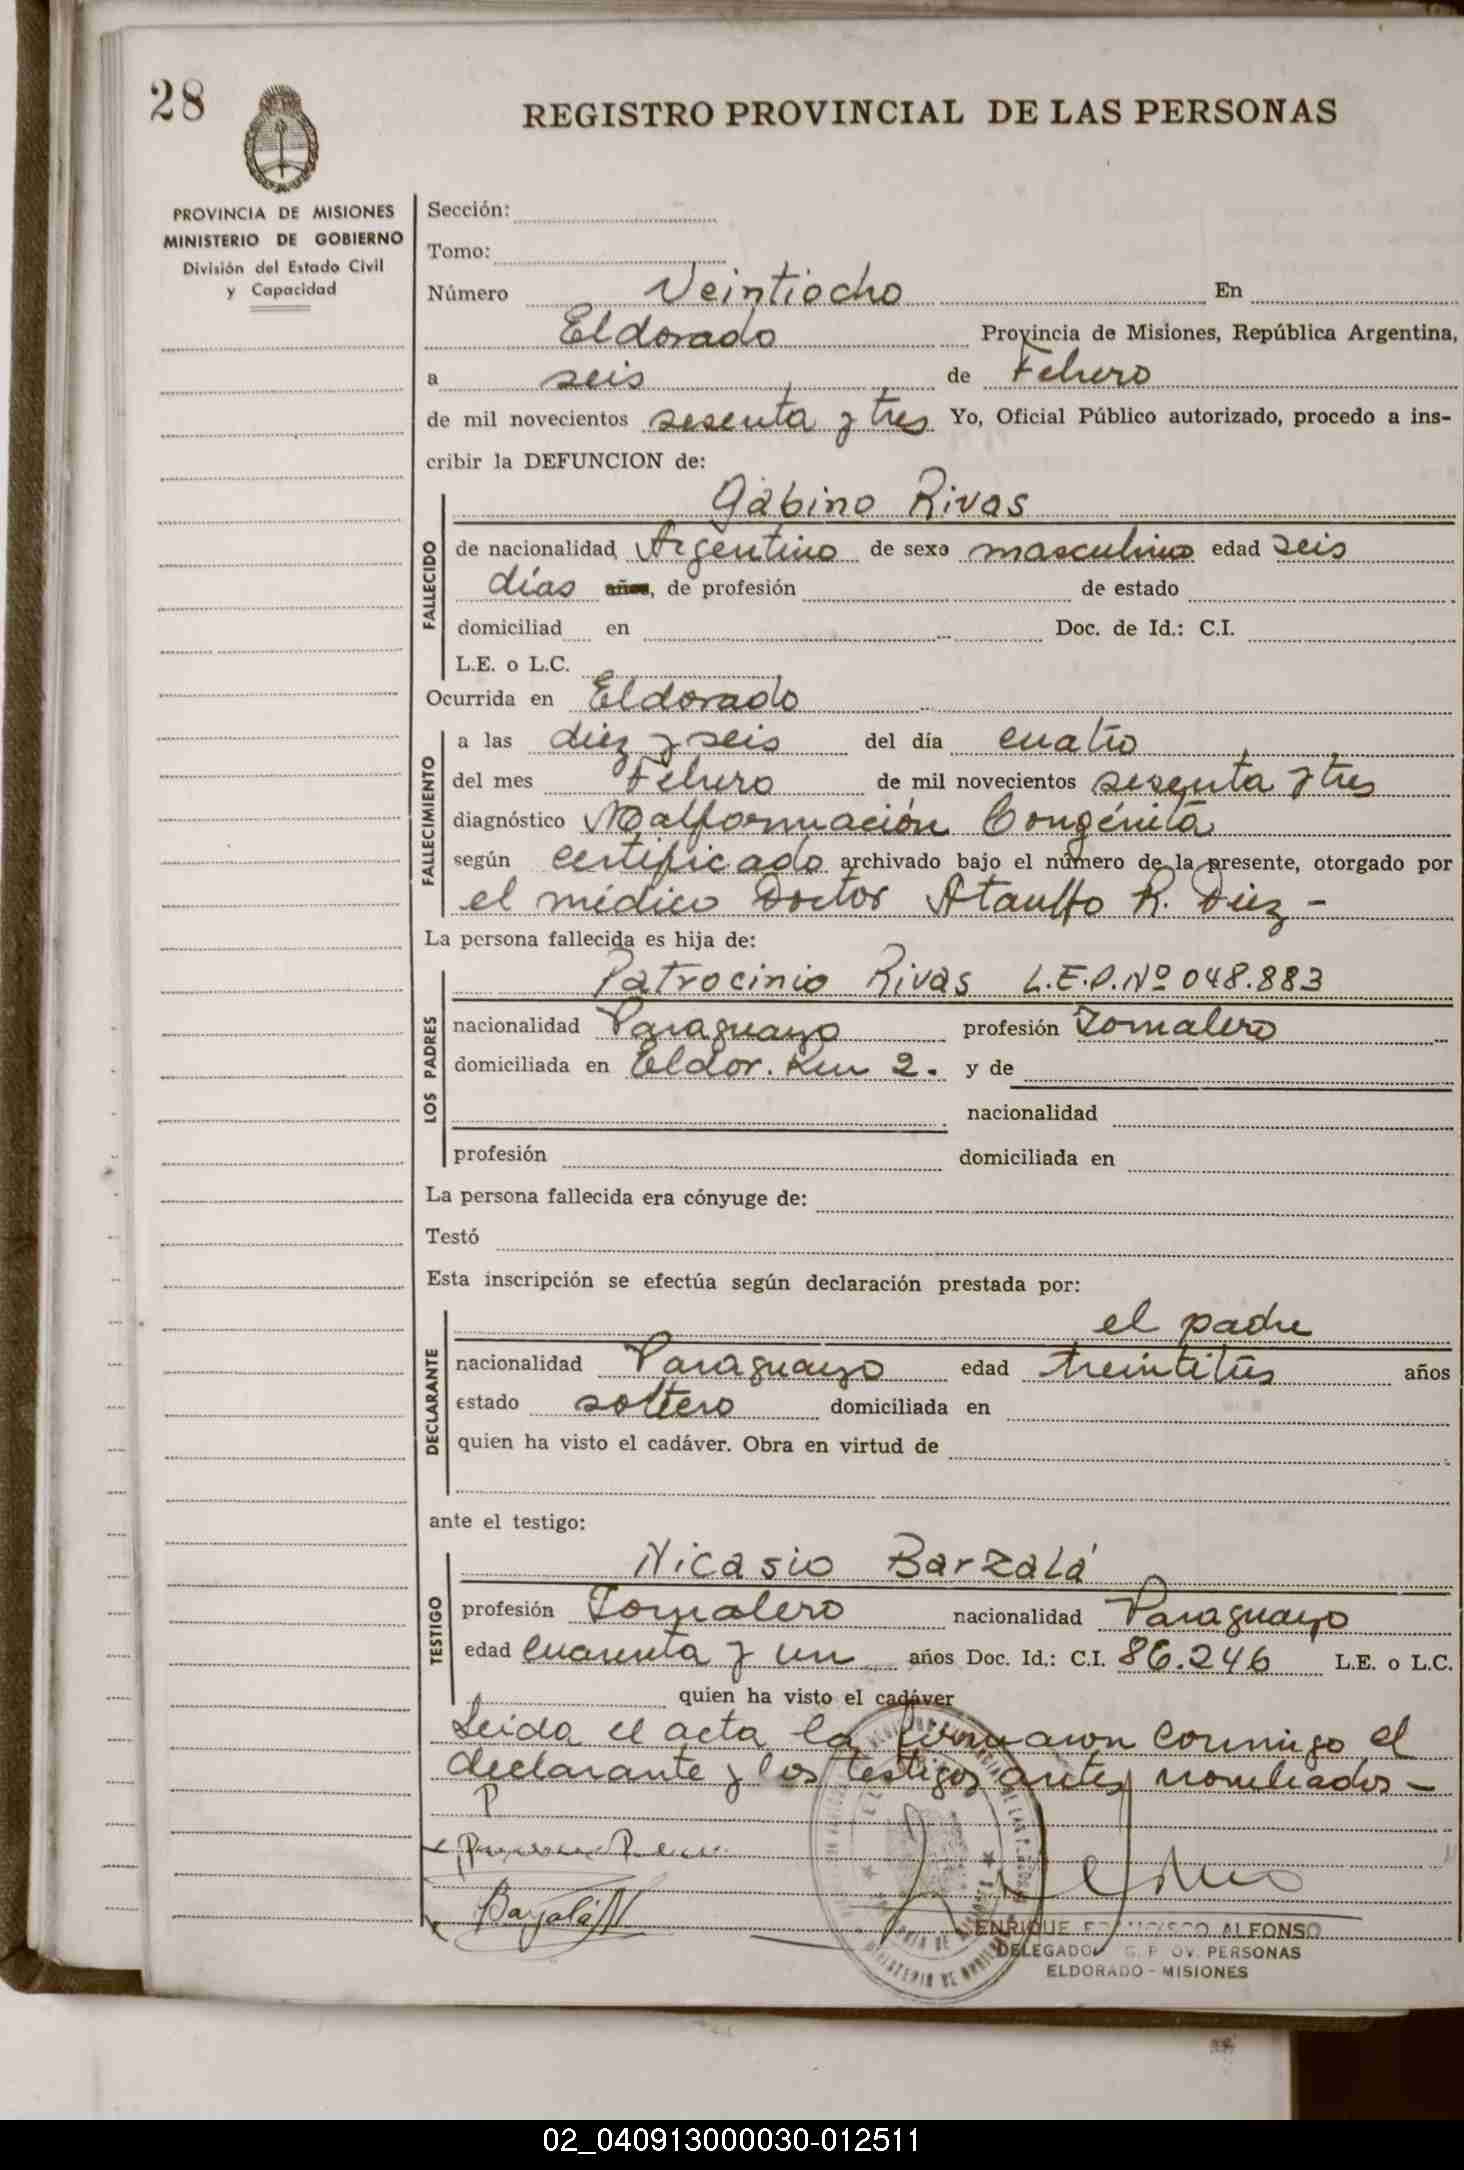 28
REGISTRO PROVINCIAL DE LAS PERSONAS
PROVINCIA DE MISIONES
MINISTERIO DE GOBIERNO
División del Estado Civil
y Capacidad
Sección:
Tomo:
Número Veintiocho En
Eldorado Provincia de Misiones, República Argentina,
a seis de Febrero
de mil novecientos sesenta y tres Yo, Oficial Público autorizado, procedo a ins-
cribir la DEFUNCION de:
FALLECIDO
Gabino Rivas
de nacionalidad Argentino de sexo masculino edad seis
días años, de profesión de estado
domiciliad en Doc. de Id.: C.I.
L.E. o L.C.
Ocurrida en Eldorado
FALLECIMIENTO
a las diez y seis del día cuatro
del mes Febrero de mil novecientos sesenta y tres
diagnóstico Malformación Congénita
según certificado archivado bajo el número de la presente, otorgado por
el médico Doctor Ataulfo R. Diez -
La persona fallecida es hija de:
LOS PADRES
Patrocinio Rivas L.E.P.Nº 048.883
nacionalidad Paraguayo profesión Jornalero
domiciliada en Eldor. Km 2. y de
nacionalidad
profesión domiciliada en
La persona fallecida era cónyuge de:
Testó
Esta inscripción se efectúa según declaración prestada por:
DECLARANTE
el padre
nacionalidad Paraguayo edad treintitrés años
estado soltero domiciliada en
quien ha visto el cadáver. Obra en virtud de
ante el testigo:
TESTIGO
Nicasio Barzalá
profesión Jornalero nacionalidad Paraguayo
edad cuarenta y un años Doc. Id.: C.I. 86.246 L.E. o L.C.
quien ha visto el cadáver
Leida el acta la firmaron conmigo el
declarante y los testigos antes nombrados -
P
Barzalá N
ENRIQUE FRANCISCO ALFONSO
DELEGADO G. P OV. PERSONAS
ELDORADO - MISIONES
02_040913000030-012511